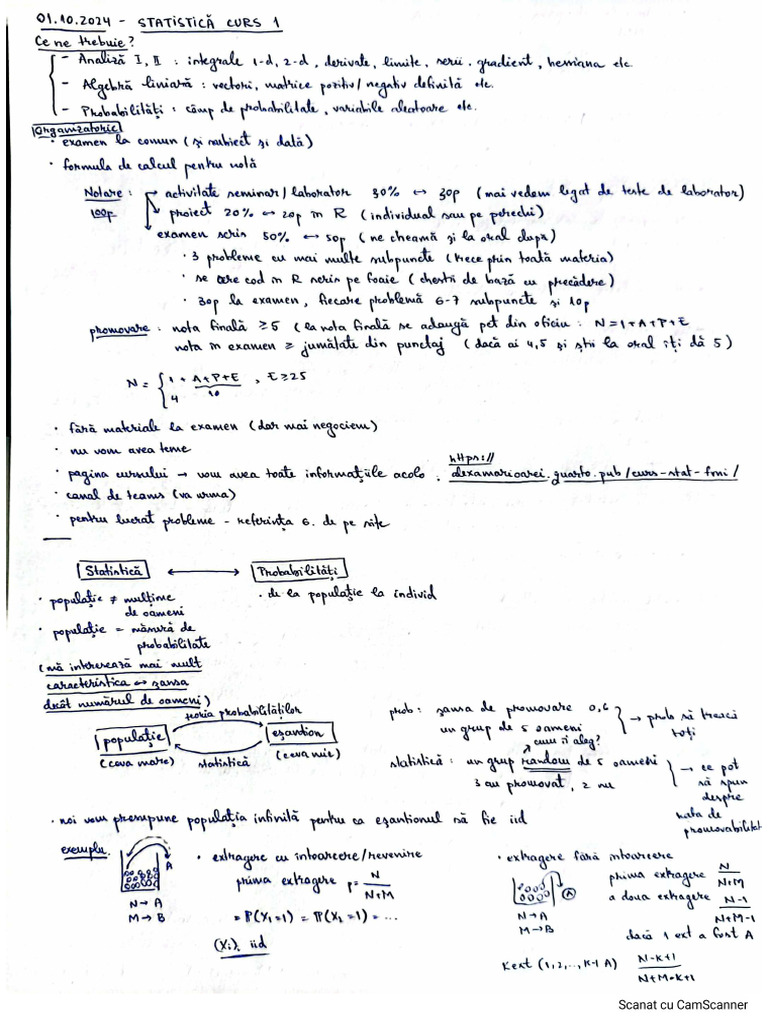 01.10.2024 - STATISTICĂ CURS 1
Ce ne trebuie?
- Analiză I, II : integrale 1-d, 2-d, derivate, limite, serii, gradient, hessiana etc.
- Algebră liniară : vectori, matrice pozitiv/negativ definită etc.
- Probabilități : câmp de probabilitate, variabile aleatoare etc.
Organizatoric
· examen la comun (și subiect și dată)
· formula de calcul pentru notă
Notare : → activitate seminar/laborator 30% ↔ 30p (mai vedem legat de teste de laborator)
100p → proiect 20% ↔ 20p în R (individual sau pe perechi)
→ examen scris 50% ↔ 50p (ne cheamă și la oral după)
· 3 probleme cu mai multe subpuncte (trece prin toată materia)
· se cere cod în R scris pe foaie (chestii de bază cu precădere)
· 30p la examen, fiecare problemă 6-7 subpuncte și 10p
promovare : nota finală ≥5 (la nota finală se adaugă pct din oficiu : N=1+A+P+E
nota în examen ≥ jumătate din punctaj (dacă ai 4,5 și știi la oral îți dă 5)
N = { 1 + (A+P+E)/10 , E≥25
4
· fără materiale la examen (dar mai negociem)
· nu vom avea teme
· pagina cursului → vom avea toate informațiile acolo : https://
alexamarioarei.quarto.pub/curs-stat-fmi/
· canal de teams (va urma)
· pentru lucrat probleme - referința 6. de pe site
Statistică ↔ Probabilități
· populație ≠ mulțime
de oameni
· de la populație la individ
· populație = măsură de
probabilitate
(mă interesează mai mult
caracteristica ↔ șansa
decât numărul de oameni)
teoria probabilităților
populație
eșantion
(ceva mare)
statistică
(ceva mic)
prob : șansa de promovare 0,6
un grup de 5 oameni
→ prob să treacă
toți
cum îi aleg?
statistică : un grup random de 5 oameni
3 au promovat, 2 nu
→ ce pot
să spun
despre
rata de
promovabilitate
· noi vom presupune populația infinită pentru ca eșantionul să fie iid
exemplu:
A
N → A
M → B
· extragere cu întoarcere/revenire
prima extragere p = N/(N+M)
= P(X₁=1) = P(X₂=1) = ...
(Xᵢ)ᵢ iid
· extragere fără întoarcere
A
N → A
M → B
prima extragere N/(N+M)
a doua extragere (N-1)/(N+M-1)
dacă 1 ext a fost A
K ext (1,2,..,K-1 A) (N-K+1)/(N+M-K+1)
Scanat cu CamScanner